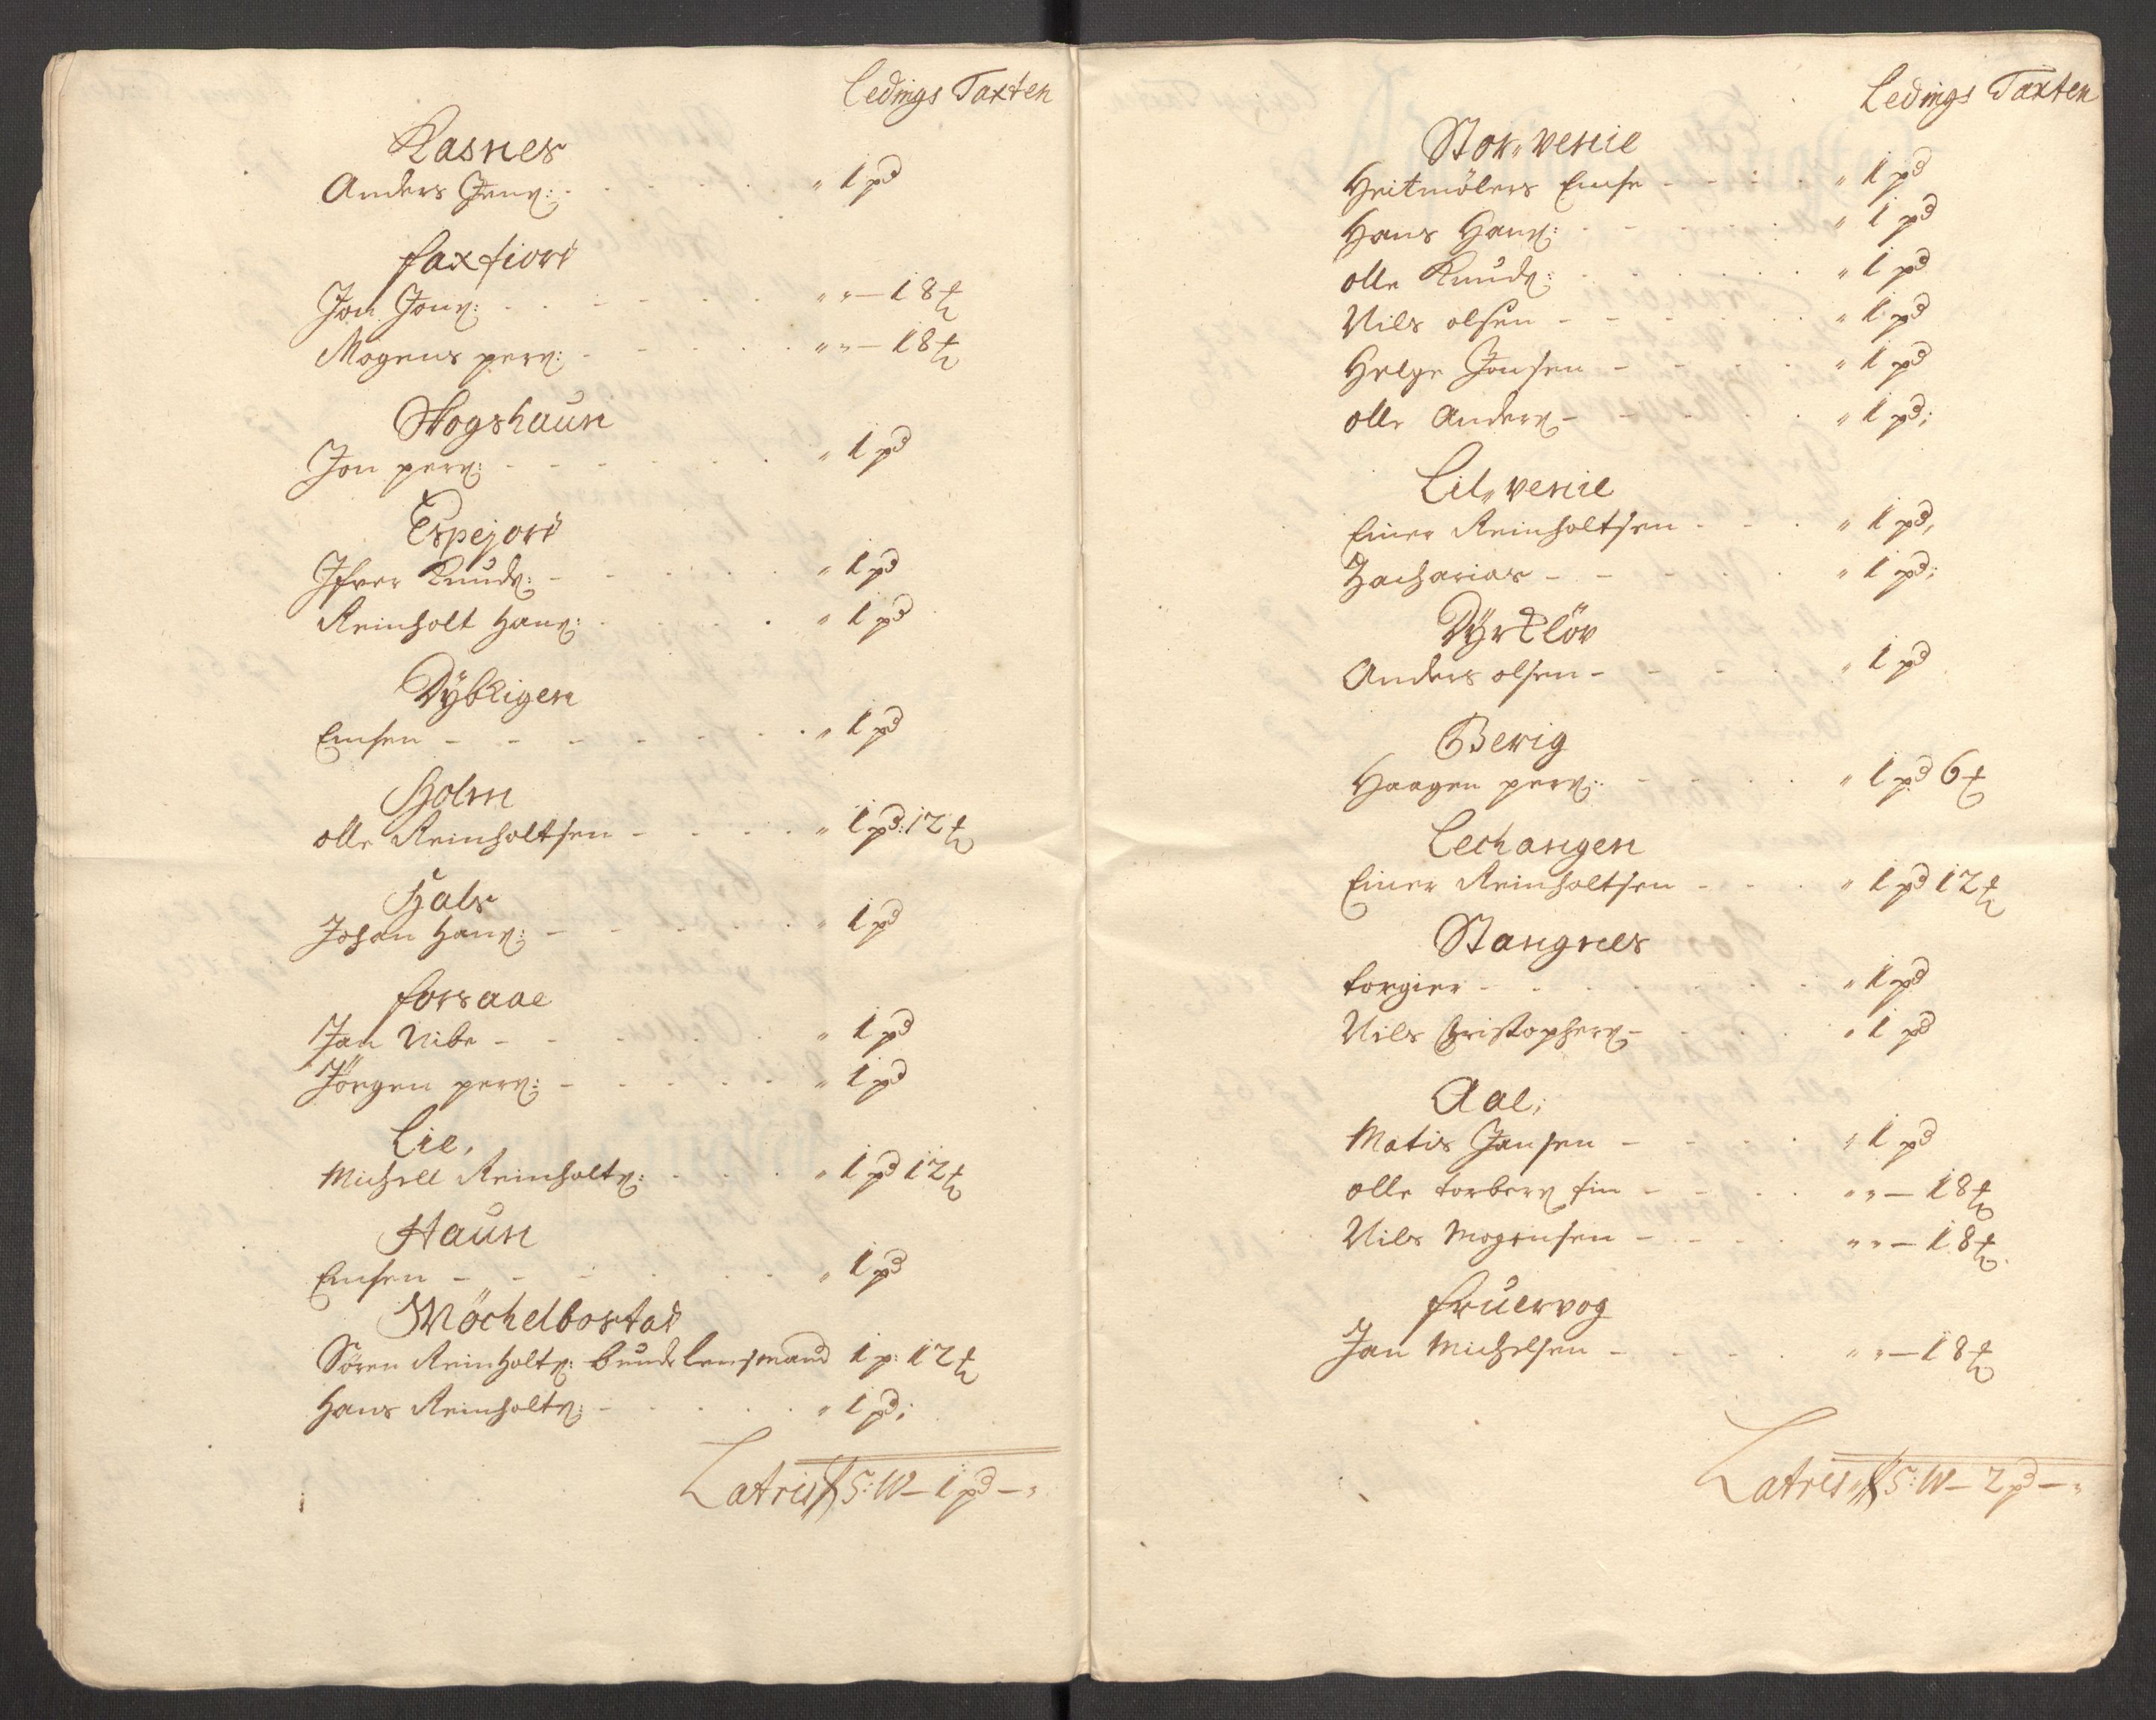 Ledings Taxten
Kasnes
Anders Jenß: " 1 pd
faxfiord
Jon Jonß: " " — 18 ℔
Mogens perß: " " — 18 ℔
Skogshaun
Jon perß: " 1 pd
Espejord
Jfver Knudß: " 1 pd
Reinholt Hanß: " 1 pd
Dybkigen
Enchen " 1 pd
Holm
olle Reinholtsen " 1 pd: 12 ℔
Hals
Johan Hanß: " 1 pd
forsaae
Jan Vibe " 1 pd
Jörgen perß: " 1 pd
Lie,
Michell Reinholtß: " 1 pd 12 ℔
Haun
Enchen " 1 pd
Möchelbostad
Sören Reinholtß: bundelensmand 1 p: 12 ℔
Hans Reinholtß: " 1 pd;
Latris 5: W — 1 pd — "
Ledings Taxten
Stor" venie
Heitmölers Enche " 1 pd
Hans Hanß: " 1 pd
olle Knudß: " 1 pd
Nils olsen " 1 pd
Helge Jonsen " 1 pd
olle Anderß " 1 pd;
Lil" venie
Einer Reinholtsen " 1 pd,
Zacharias " 1 pd;
Dyrtlöv
Anders olsen " 1 pd
Berig
Haagen perß: " 1 pd 6 ℔
Lechangen
Einer Reinholtsen " 1 pd 12 ℔
Stangnes
torgier " 1 pd
Nils Christopherß " 1 pd
Aae;
Matis Jansen " 1 pd
olle torberß fin " " — 18 ℔
Nils Mogensen " " — 18 ℔
fruervog
Jan Michelsen " " — 18 ℔
Latris 5: W — 2 pd — "